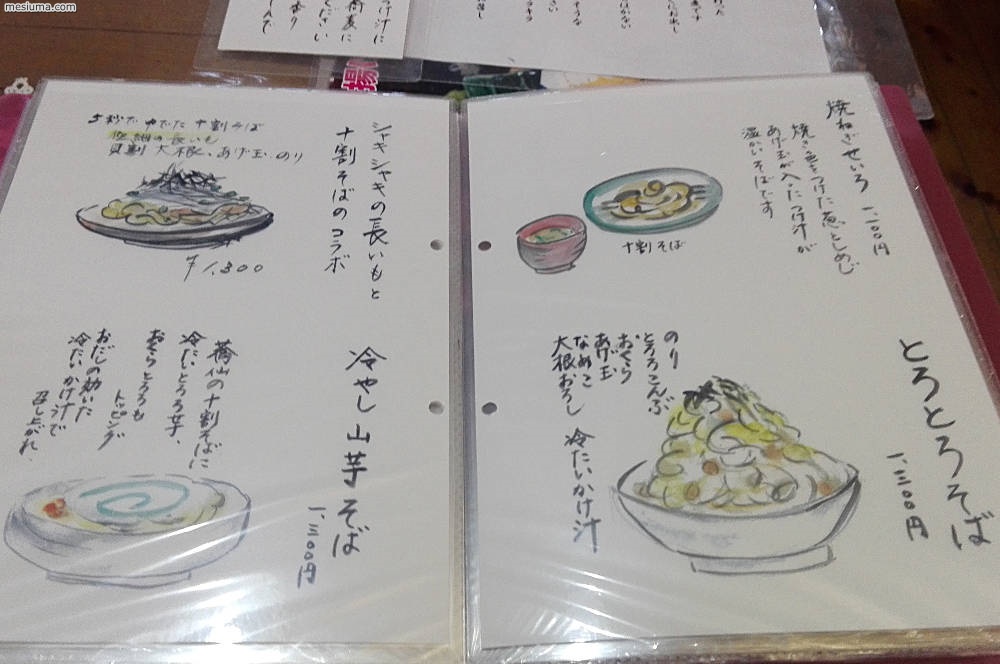 mesiuma.com
焼ねぎせいろ 一、一〇〇円
焼き色をつけた葱としめじ
あげ玉が入ったつけ汁が
温かいそばです
十割そば
とろとろそば
一、三〇〇円
のり
とろろこんぶ
おくら
あげ玉
なめこ
大根おろし
冷たいかけ汁
シャキシャキの長いもと
十割そばのコラボ
5秒でゆでた十割そば
極細の長いも
貝割大根、あげ玉、のり
¥1,300
冷やし山芋そば
一、三〇〇円
蕎仙の十割そばに
冷たいとろろ芋、
おくらとろろも
トッピング
おだしの効いた
冷たいかけ汁で
召し上がれ、